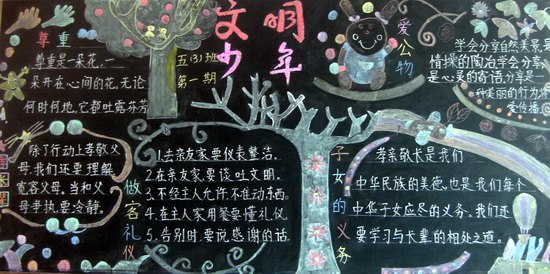 文明
少年
五(3)班
第一期
尊重
尊重是一朵花,一
朵开在心间的花,无论
何时何地,它都吐露芬芳
爱公物
学会分享自然美景,
情操的陶冶学会分享
是心灵的寄语,分享是一
种美丽的行为,
爱传播
除了行动上孝敬父
母,我们还要理解
宽容父母,当和父
母争执要冷静。
做客礼仪
1.去亲友家要仪表整洁。
2.在亲友家要谈吐文明。
3.不经主人允许,不准动东西。
4.在主人家用餐要懂礼仪
5.告别时要说感谢的话。
子女的义务
孝亲敬长是我们
中华民族的美德,也是我们每个
中华子女应尽的义务。我们还
要学习与长辈的相处之道。